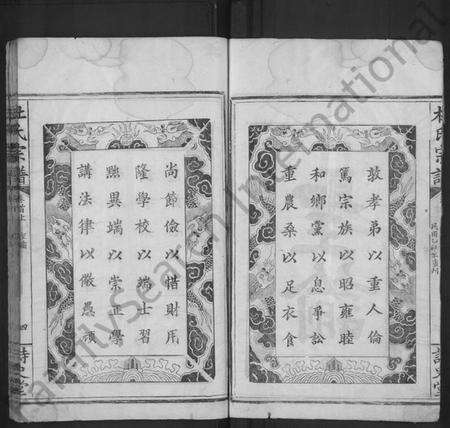 敦孝弟以重人倫
篤宗族以昭雍睦
和鄉黨以息爭訟
重農桑以足衣食
尚節儉以惜財用
隆學校以端士習
黜異端以崇正學
講法律以儆愚頑
杜氏宗譜
杜氏宗譜
四
詩史堂
詩史堂
FamilySearch International